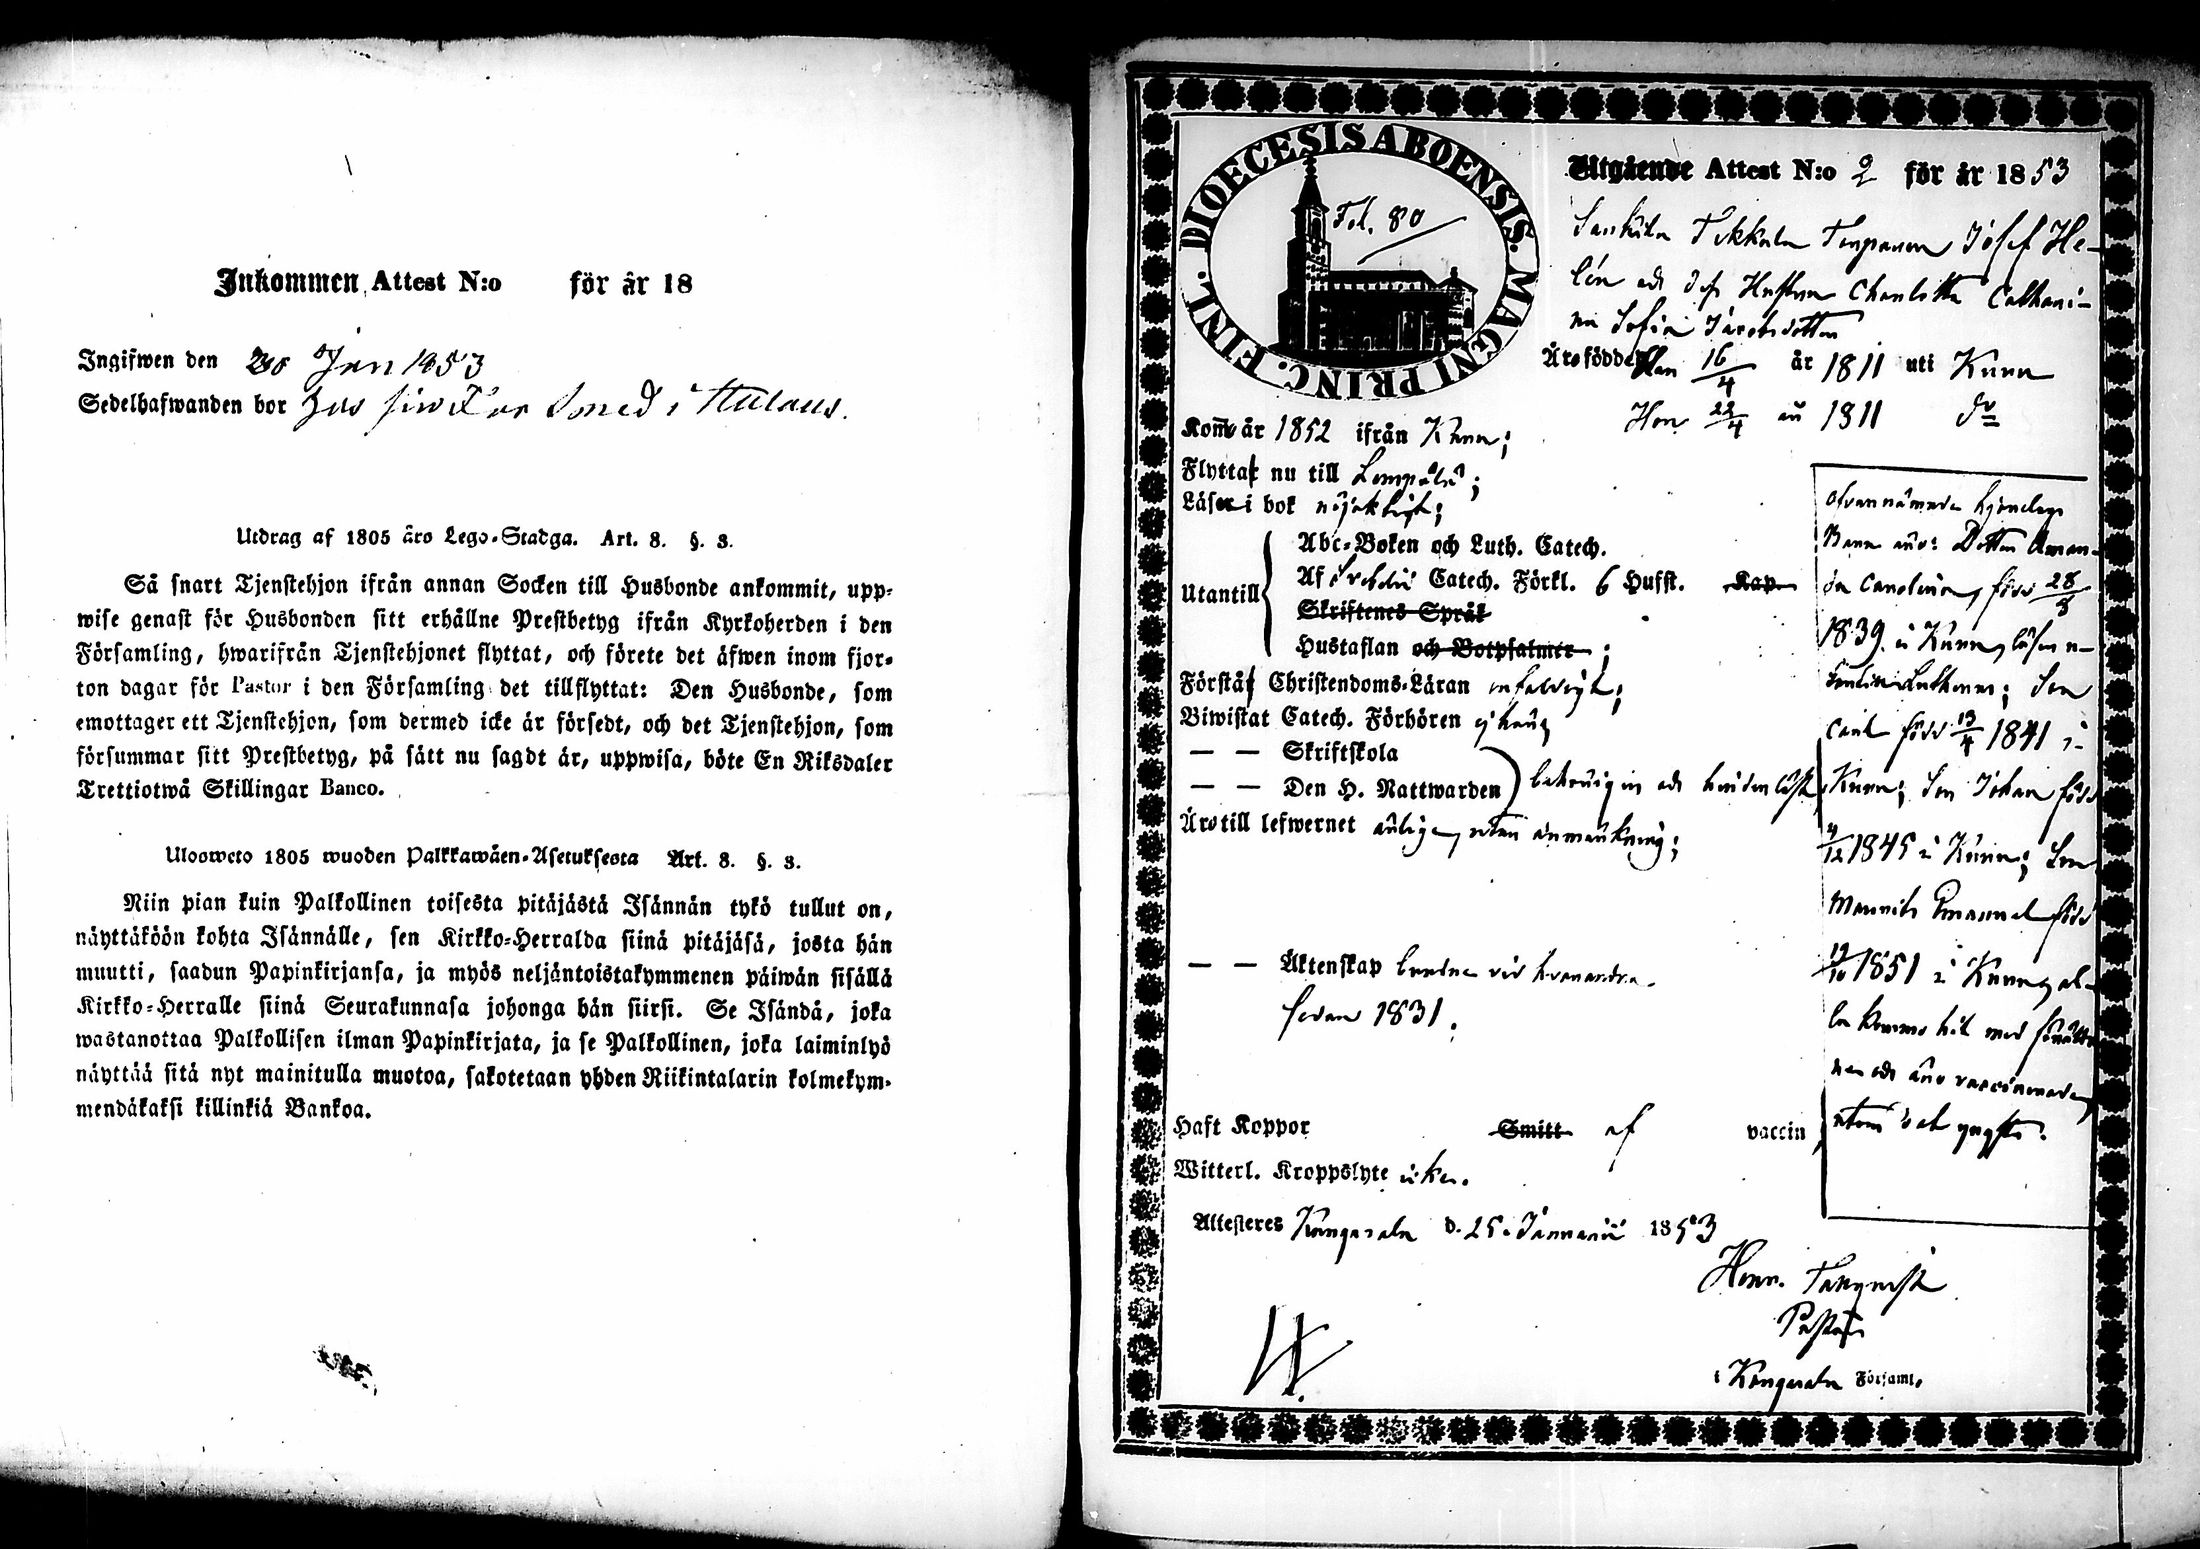 Inkommen Attest N:o för år 18
Ingifwen den 30 Jan 1853
Sedelhafwanden bor hos sin Far Smed i
Utdrag af 1805 års Lego-Stadga. Art. 8. §. 3.
Så snart Tjenstehjon ifrån annan Socken till Husbonde ankommit, upp-
wise genast för Husbonden sitt erhållne Prestbetyg ifrån Kyrkoherden i den
Församling, hwarifrån Tjenstehjonet flyttat, och förete det äfwen inom fjor-
ton dagar för Pastor i den Församling det tillflyttat: Den Husbonde, som
emottager ett Tjenstehjon, som dermed icke är försedt, och det Tjenstehjon, som
försummar sitt Prestbetyg, på sätt nu sagdt är, uppwisa, böte En Riksdaler
Trettiotwå Skillingar Banco.
Ulosweto 1805 wuoden Palkkawäen-Asetuksesta Art. 8. §. 3.
Niin pian kuin Palkollinen toisesta pitäjästä Isännän tykö tullut on,
näyttäköön kohta Isännälle, sen Kirkko-Herralda siinä pitäjäsä, josta hän
muutti, saadun Papinkirjansa, ja myös neljäntoistakymmenen päiwän sisällä
Kirkko-Herralle siinä Seurakunnasa johonga hän siirsi. Se Isändä, joka
wastanottaa Palkollisen ilman Papinkirjata, ja se Palkollinen, joka laiminlyö
näyttää sitä nyt mainitulla muotoa, sakotetaan yhden Riikintalarin kolmekym-
mendäkaksi killinkiä Bankoa.
DIOECESIS ABOENSIS. MAGNI PRINC. FINL.
Fol. 80
Utgående Attest N:o 2 för år 1853
Josef He-
lén och dess Hustru Charlotta Cathari-
na Sofia Jacobsdotter
Äro födde Han 16/4 år 1811 uti Kuru
Hon 22/4 år 1811 do
Kommo år 1852 ifrån Kuru;
Flytta nu till Lempälä;
Läsa i bok nöjaktigt;
Utantill
Abc-Boken och Luth. Catech.
Af Svebelii Catech. Förkl. 6 Hufst. Kap
Skriftenes Språk
Hustaflan och Botpsalmer;
Förstå Christendoms-Läran enfaldigt;
Biwistat Catech. Förhören
— — Skriftskola
— — Den H. Nattwarden
och
Äro till lefwernet ärlige, utan anmärkning;
— — Äktenskap bundne vid hvarandra
sedan 1831.
Haft Koppor Smitt af vaccin
Witterl. Kroppslyte icke.
Attesteres Kangasala d. 25 Januarii 1853
Henr.
Pastor
i Kangasala Församl.
Ofvannämnde hjonelags
Barn äro: Dotter Aman-
da Carolina, född 28/8
1839 i Kuru, läser u-
Son
Carl född 13/4 1841 i
Kuru; Son Johan född
9/12 1845 i Kuru; Son
Mauritz Emanuel född
19/10 1851 i Kuru, al-
la komne hit med föräldr-
ne och äro vaccinerade,
utom det yngsta.